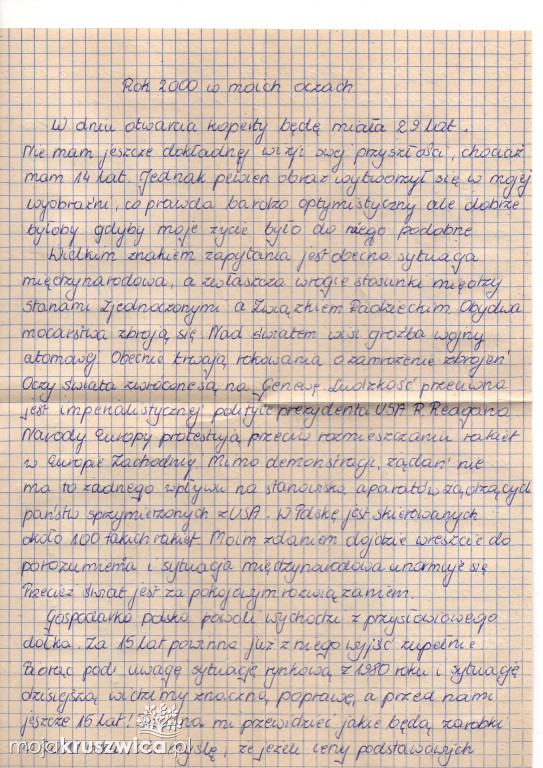 Rok 2000 w moich oczach
W dniu otwarcia koperty będę miała 29 lat.
Nie mam jeszcze dokładnej wizji swej przyszłości, chociaż
mam 14 lat. Jednak pewien obraz wytworzył się w mojej
wyobraźni, co prawda bardzo optymistyczny ale dobrze
byłoby gdyby moje życie było do niego podobne
Wielkim znakiem zapytania jest obecna sytuacja
międzynarodowa, a zwłaszcza wrogie stosunki między
Stanami Zjednoczonymi a Związkiem Radzieckim. Obydwa
mocarstwa zbroją się. Nad światem wisi groźba wojny
atomowej. Obecnie trwają rokowania o zamrożenie zbrojeń
Oczy świata zwrócone są na Genewę. Ludzkość przeciwna
jest imperialistycznej polityce prezydenta USA R. Reagana
Narody Europy protestują przeciw rozmieszczaniu rakiet
w Europie Zachodniej. Mimo demonstracji, żądań nie
ma to żadnego wpływu na stanowisko aparatów rządzących
państw sprzymierzonych z USA. W Polskę jest skierowanych
około 100 takich rakiet. Moim zdaniem dojdzie wreszcie do
porozumienia i sytuacja międzynarodowa unormuje się
Przecież świat jest za pokojowym rozwiązaniem.
Gospodarka polska powoli wychodzi z przysłowiowego
dołka. Za 15 lat powinna już z niego wyjść zupełnie
Biorąc pod uwagę sytuację rynkową z 1980 roku i sytuację
dzisiejszą widzimy znaczną poprawę, a przed nami
jeszcze 15 lat! mi przewidzieć jakie będą zarobki
mojakruszwica.pl myślę, że jeżeli ceny podstawowych